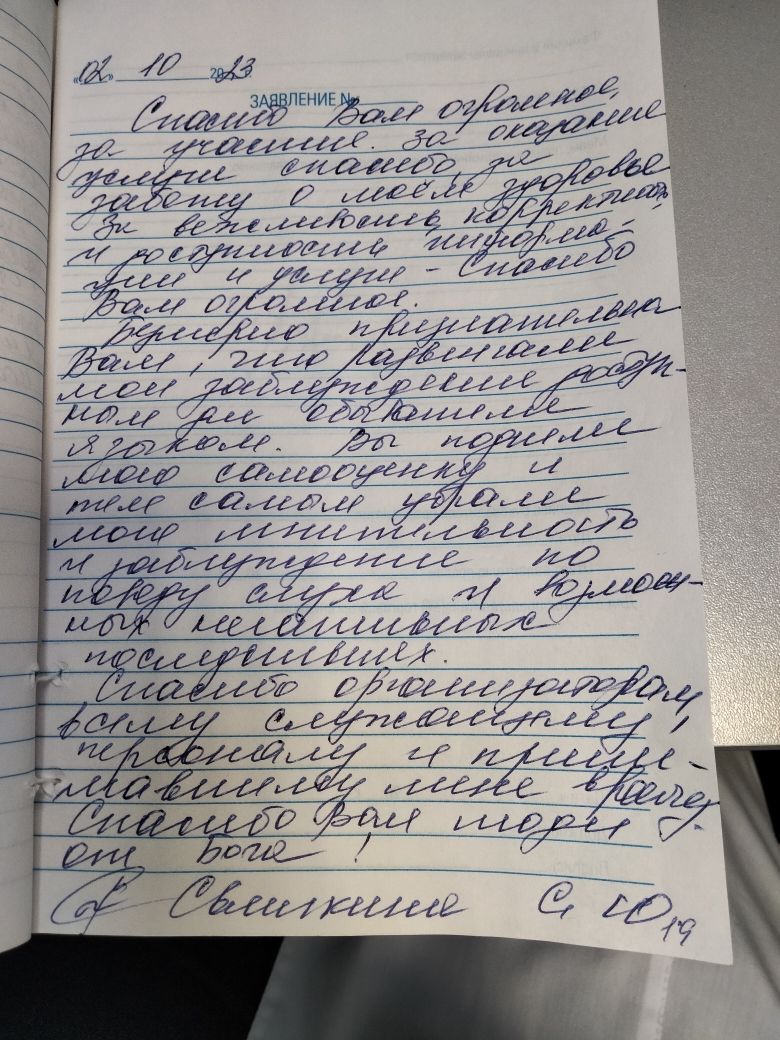 «02» 10 2023
ЗАЯВЛЕНИЕ №
Спасибо Вам огромное,
за участие. За оказание
услуги спасибо, за
заботу о моём здоровье
За вежливость, корректность
и доступность информа-
ции и услуги - Спасибо
Вам огромное.
Безмерно признательна
Вам, что развенчали
мои заблуждение доступ-
ным
языком. Вы подняли
мою самооценку и
тем самым убрали
мою мнительность
и заблуждение по
поводу слуха и возмож-
ных негативных
последствиях.
Спасибо организаторам,
всему служащему,
персоналу и прини-
мавшему мене врачу.
Спасибо Вам люди
от Бога!
С. Ю